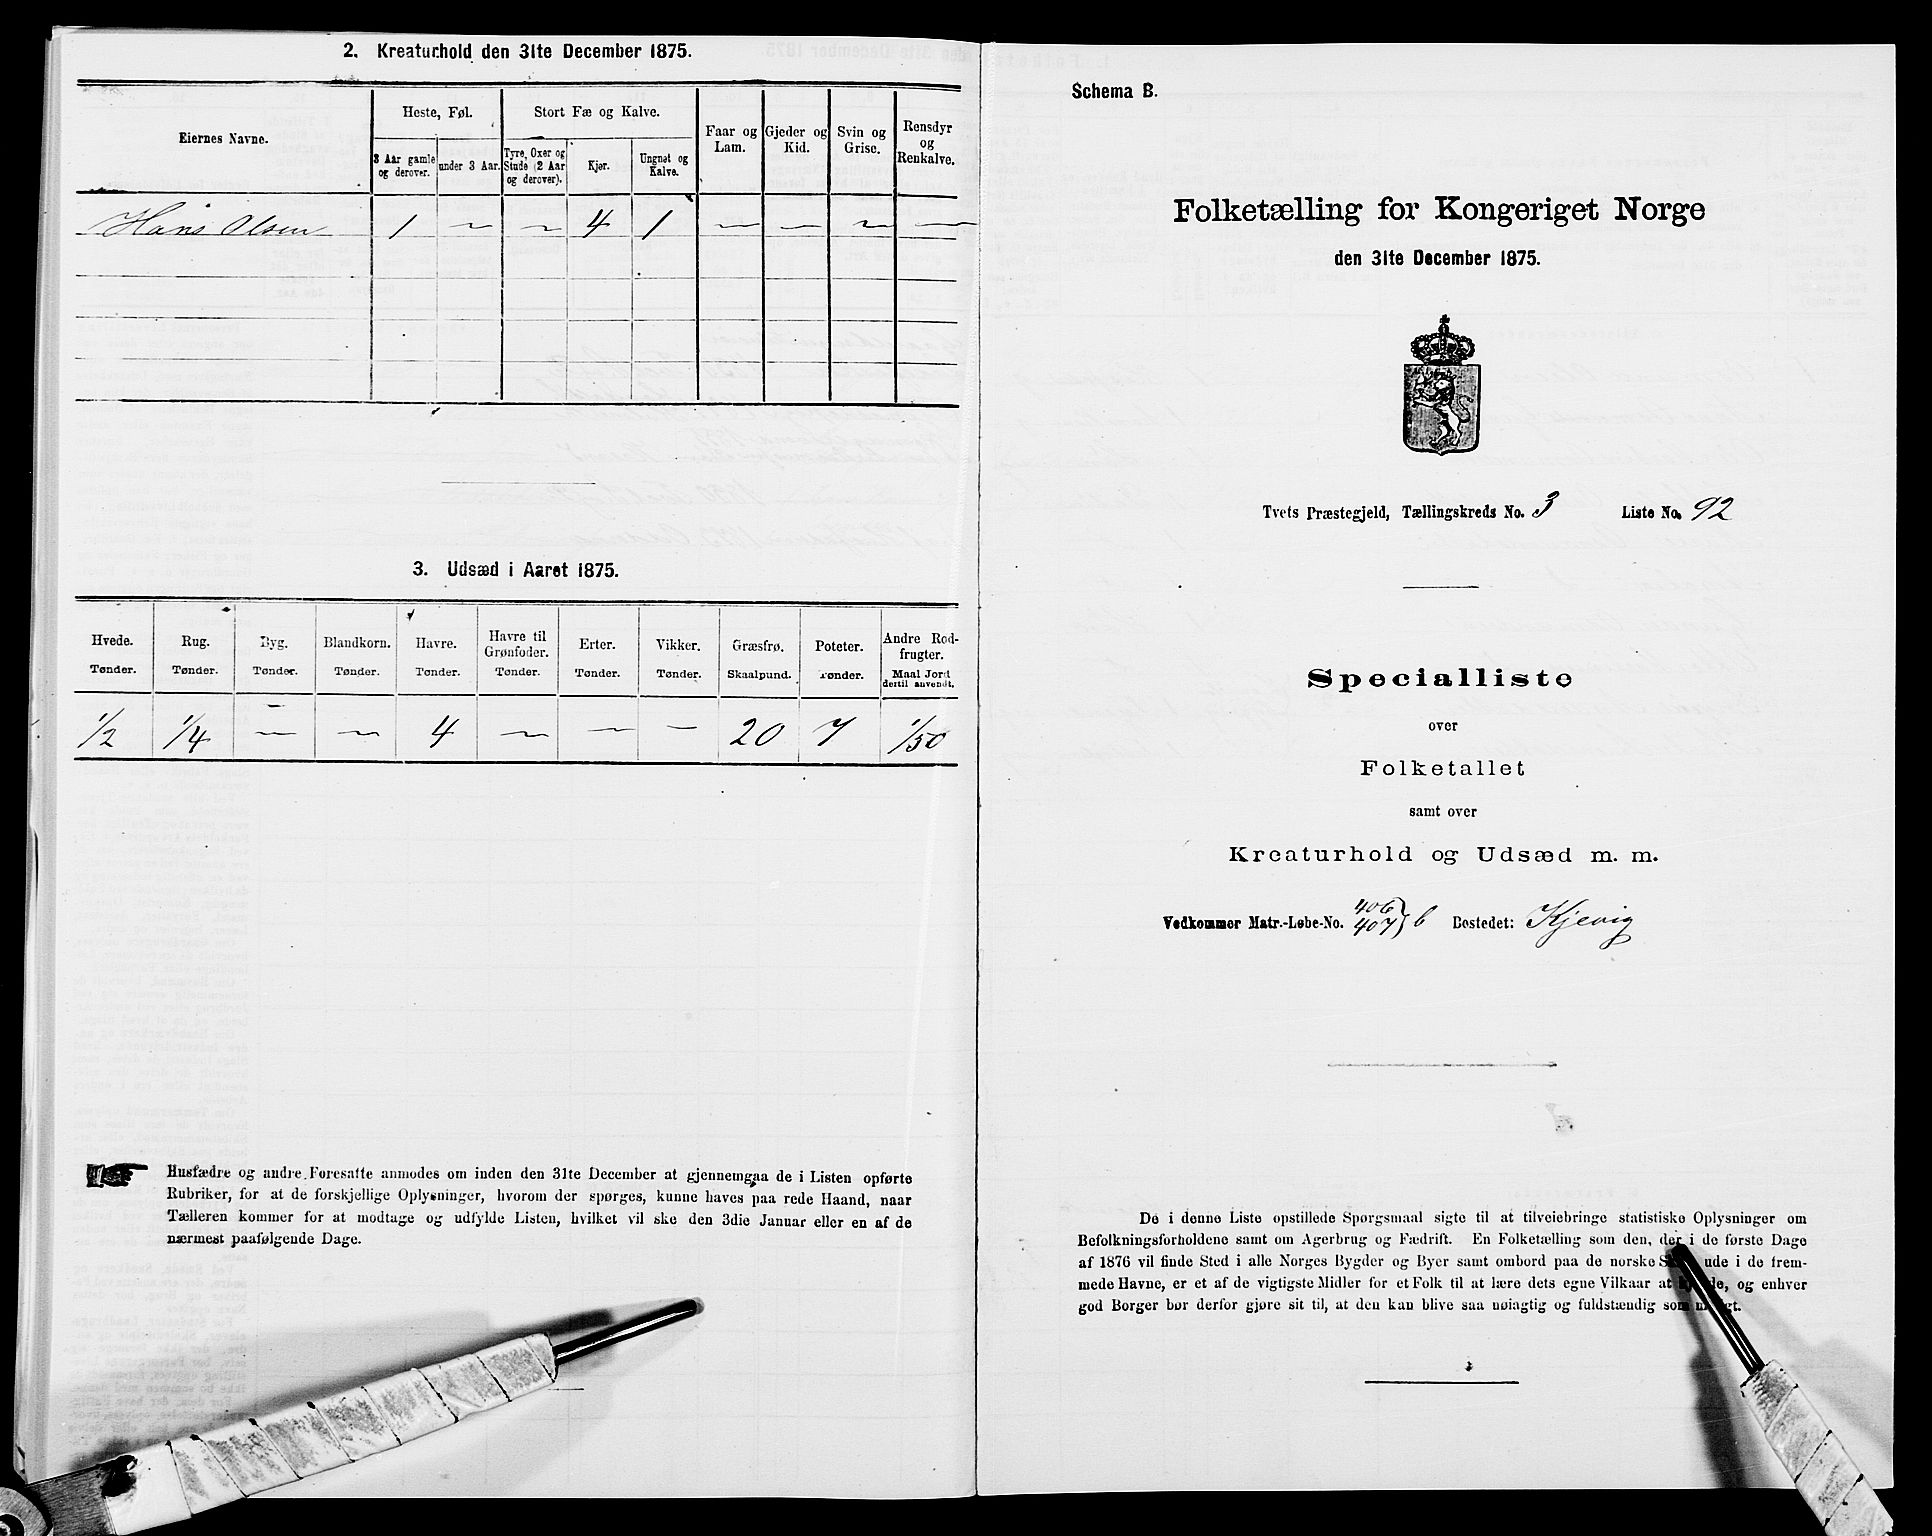 2. Kreaturhold den 31te December 1875.
Eiernes Navne.
Heste, Føl.
Stort Fæ og Kalve.
Faar og Lam.
Gjeder og Kid.
Svin og Grise.
Rensdyr og Renkalve.
3 Aar gamle og derover.
under 3 Aar.
Tyre, Oxer og Stude (2 Aar og derover).
Kjør.
Ungnøt og Kalve.
Hans Olsen 1 — — 4 1 — — — —
3. Udsæd i Aaret 1875.
Hvede. Rug. Byg. Blandkorn. Havre. Havre til Grønfoder. Erter. Vikker. Græsfrø. Poteter. Andre Rodfrugter.
Tønder. Tønder. Tønder. Tønder. Tønder. Tønder. Tønder. Tønder. Skaalpund. Tønder. Maal Jord dertil anvendt.
1/2 1/4 — — 4 — — — 20 7 1/50
Husfædre og andre Foresatte anmodes om inden den 31te December at gjennemgaa de i Listen opførte
Rubriker, for at de forskjellige Oplysninger, hvorom der spørges, kunne haves paa rede Haand, naar
Tælleren kommer for at modtage og udfylde Listen, hvilket vil ske den 3die Januar eller en af de
nærmest paafølgende Dage.
Schema B.
Folketælling for Kongeriget Norge
den 31te December 1875.
Tvets Præstegjeld, Tællingskreds No. 3 Liste No. 92
Specialliste
over
Folketallet
samt over
Kreaturhold og Udsæd m. m.
Vedkommer Matr.-Løbe-No. 406 407 b Bostedet: Kjevig
De i denne Liste opstillede Spørgsmaal sigte til at tilveiebringe statistiske Oplysninger om
Befolkningsforholdene samt om Agerbrug og Fædrift. En Folketælling som den, der i de første Dage
af 1876 vil finde Sted i alle Norges Bygder og Byer samt ombord paa de norske ude i de frem-
mede Havne, er et af de vigtigste Midler for et Folk til at lære dets egne Vilkaar at og enhver
god Borger bør derfor gjøre sit til, at den kan blive saa nøiagtig og fuldstændig som